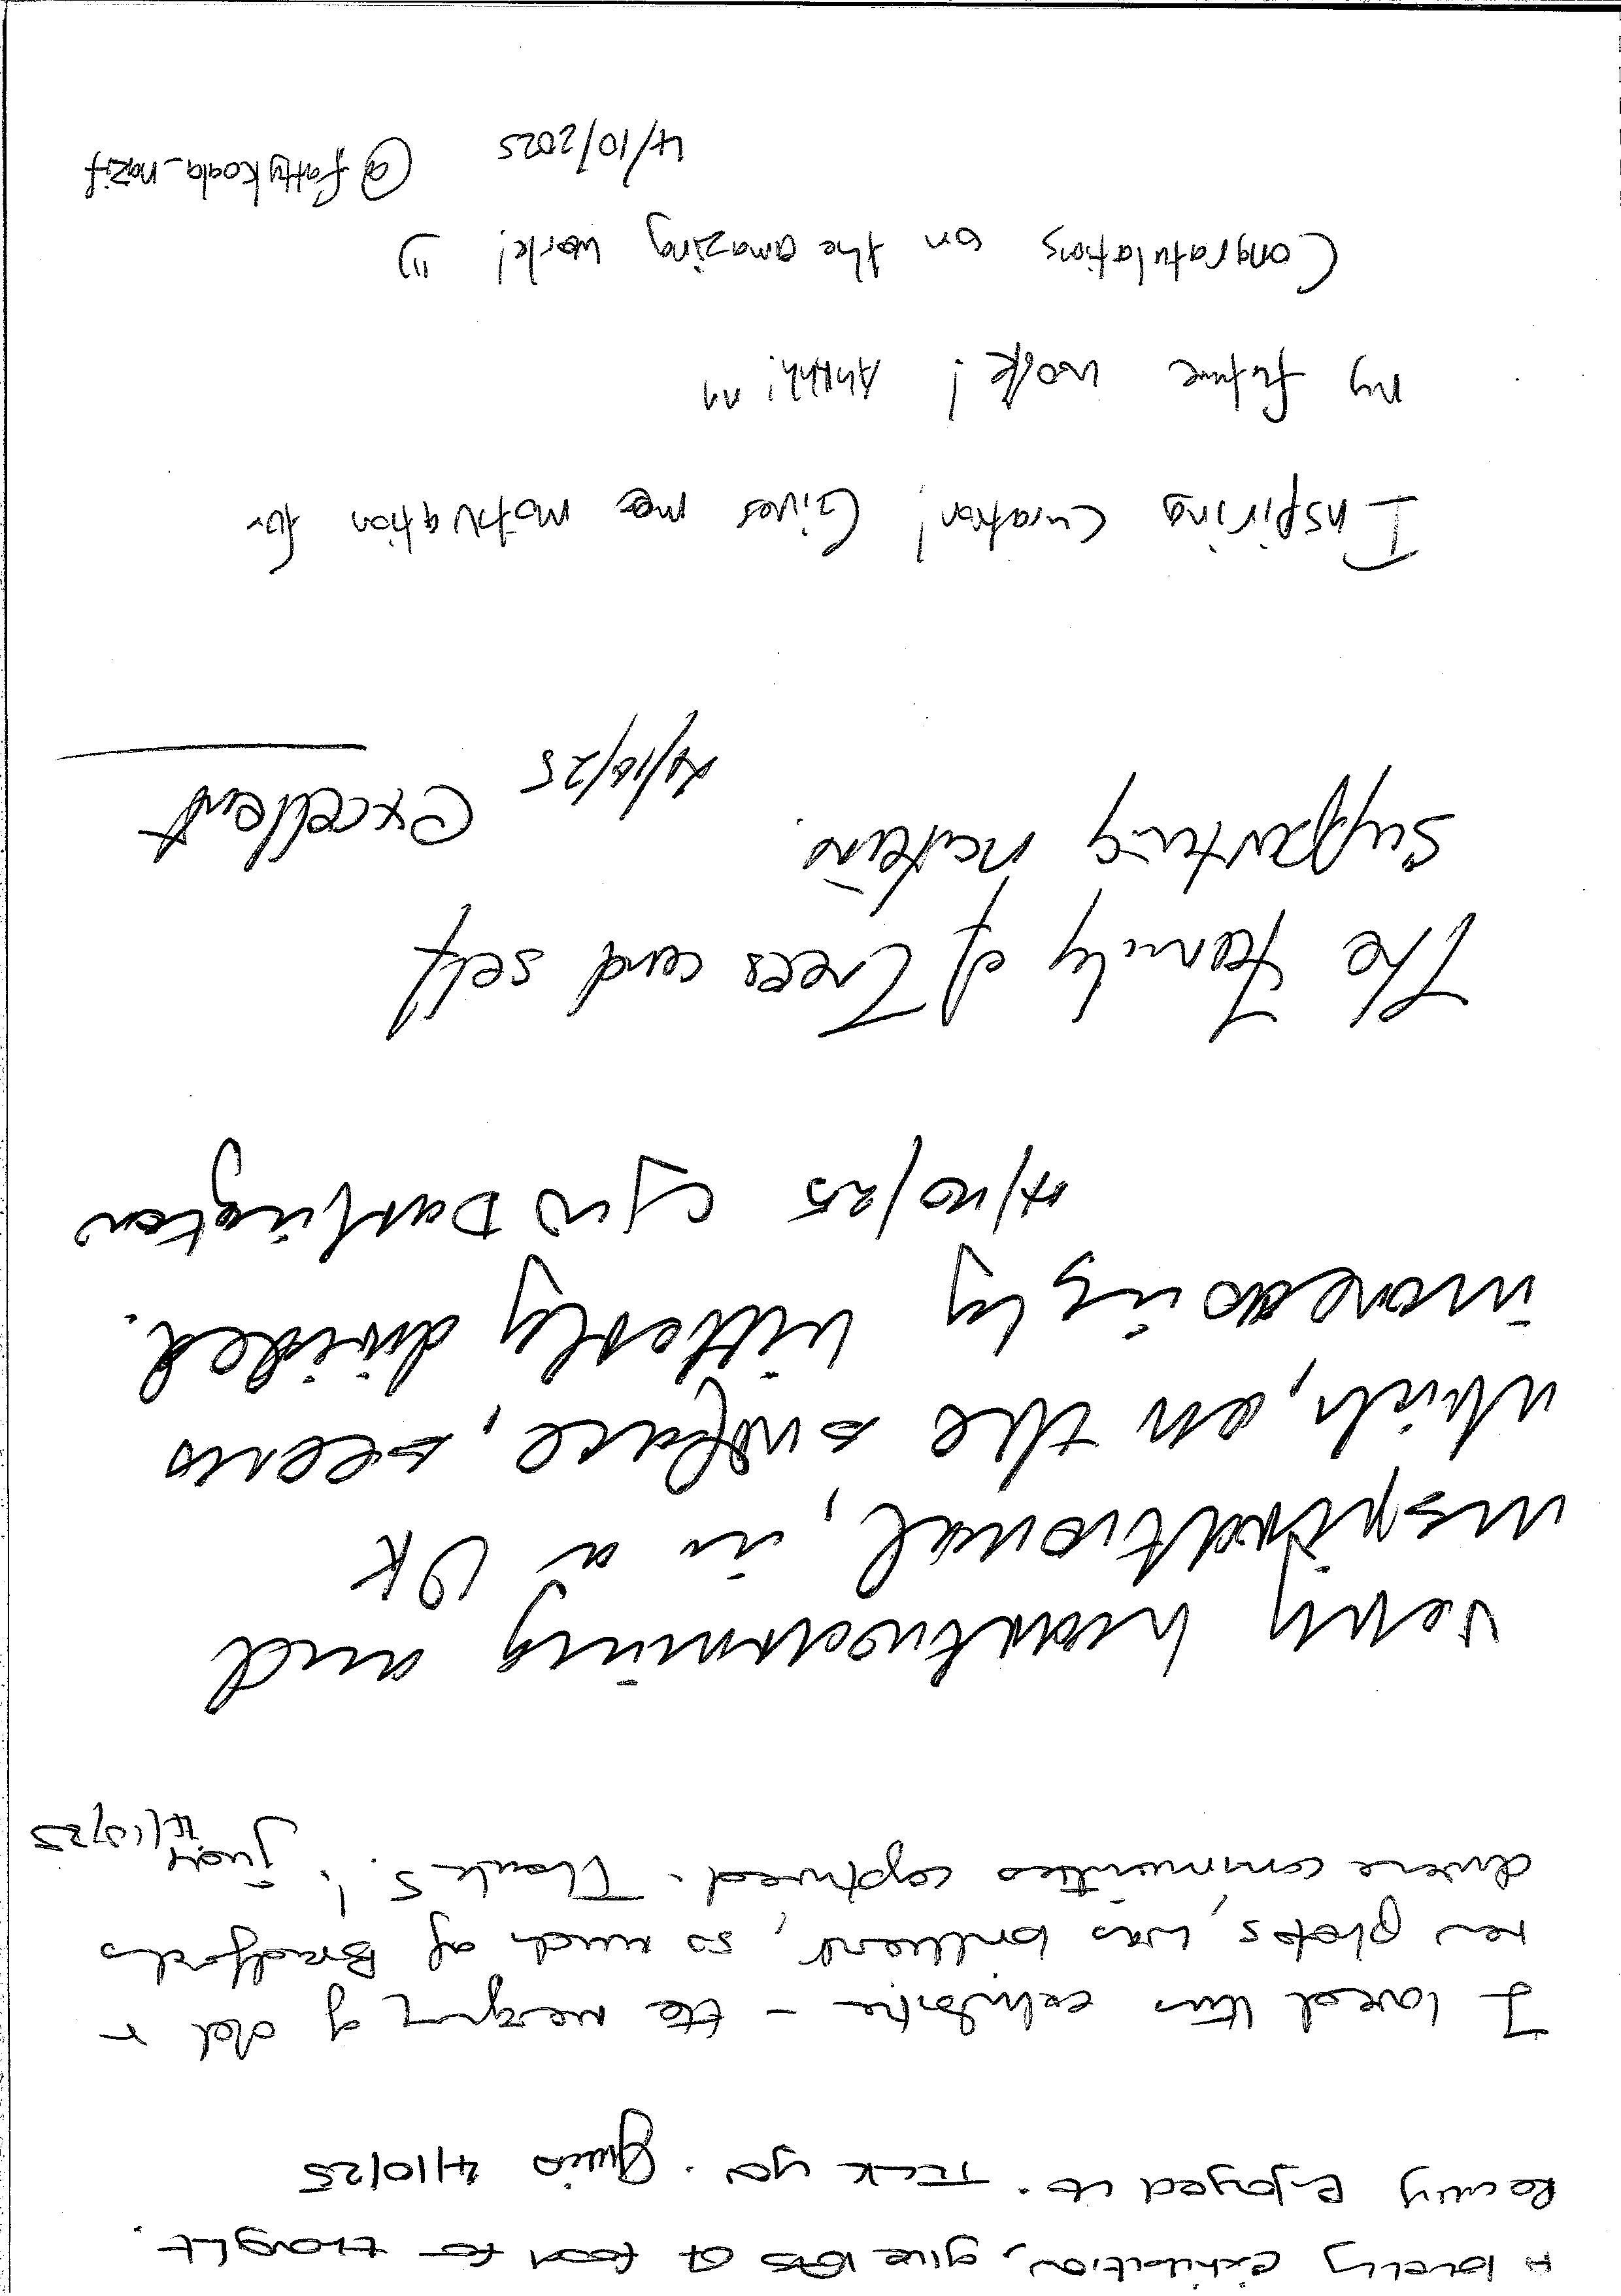 A lovely exhibition, give lots of food for thought.
Really enjoyed it. Thank you. Julia 4/10/25
I loved this exhibition – the merging of old +
new photos, was brilliant, so much of Bradfords
diverse communities captured. Thanks! Judy
4/10/25
Very heartwarming and
inspirational, in a UK
which, on the surface, seems
increasingly bitterly divided.
4/10/25 CJW Darlington
The Family of Trees and self
supporting nature.
4/10/25 Excellent
Inspiring curation! Gives me motivation for
my future work! Ahhhh!
Congratulations on the amazing work! :))
4/10/2025 @fattykoala_nazif